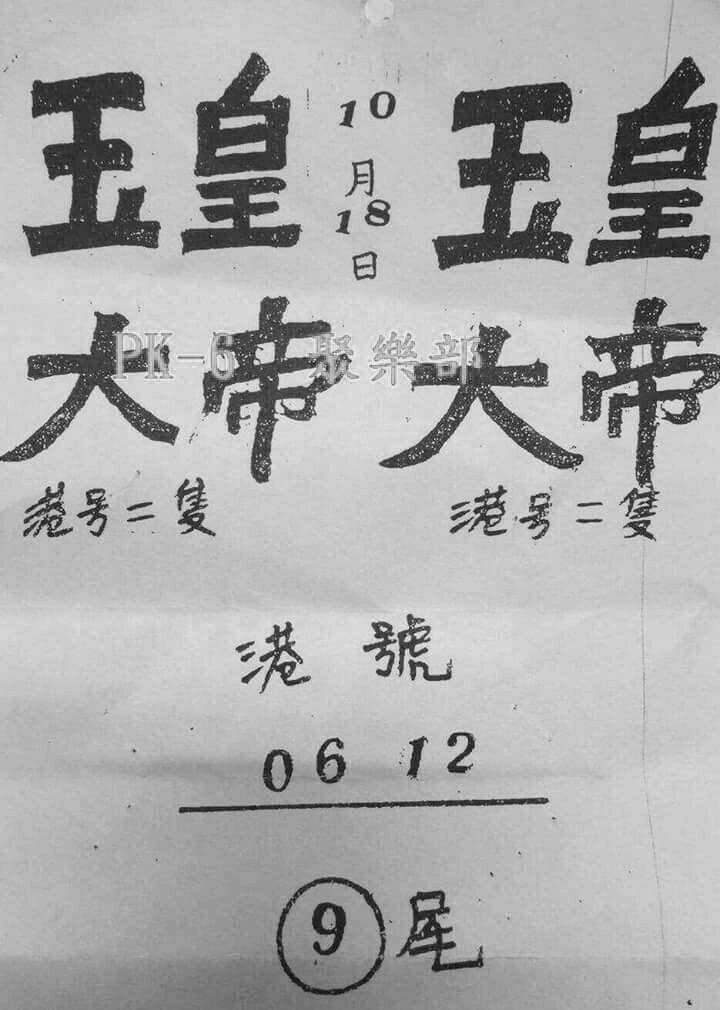 玉皇 10月18日 玉皇
大帝 大帝
PK-6 聚樂部
港号二隻 港号二隻
港號
06 12
9尾